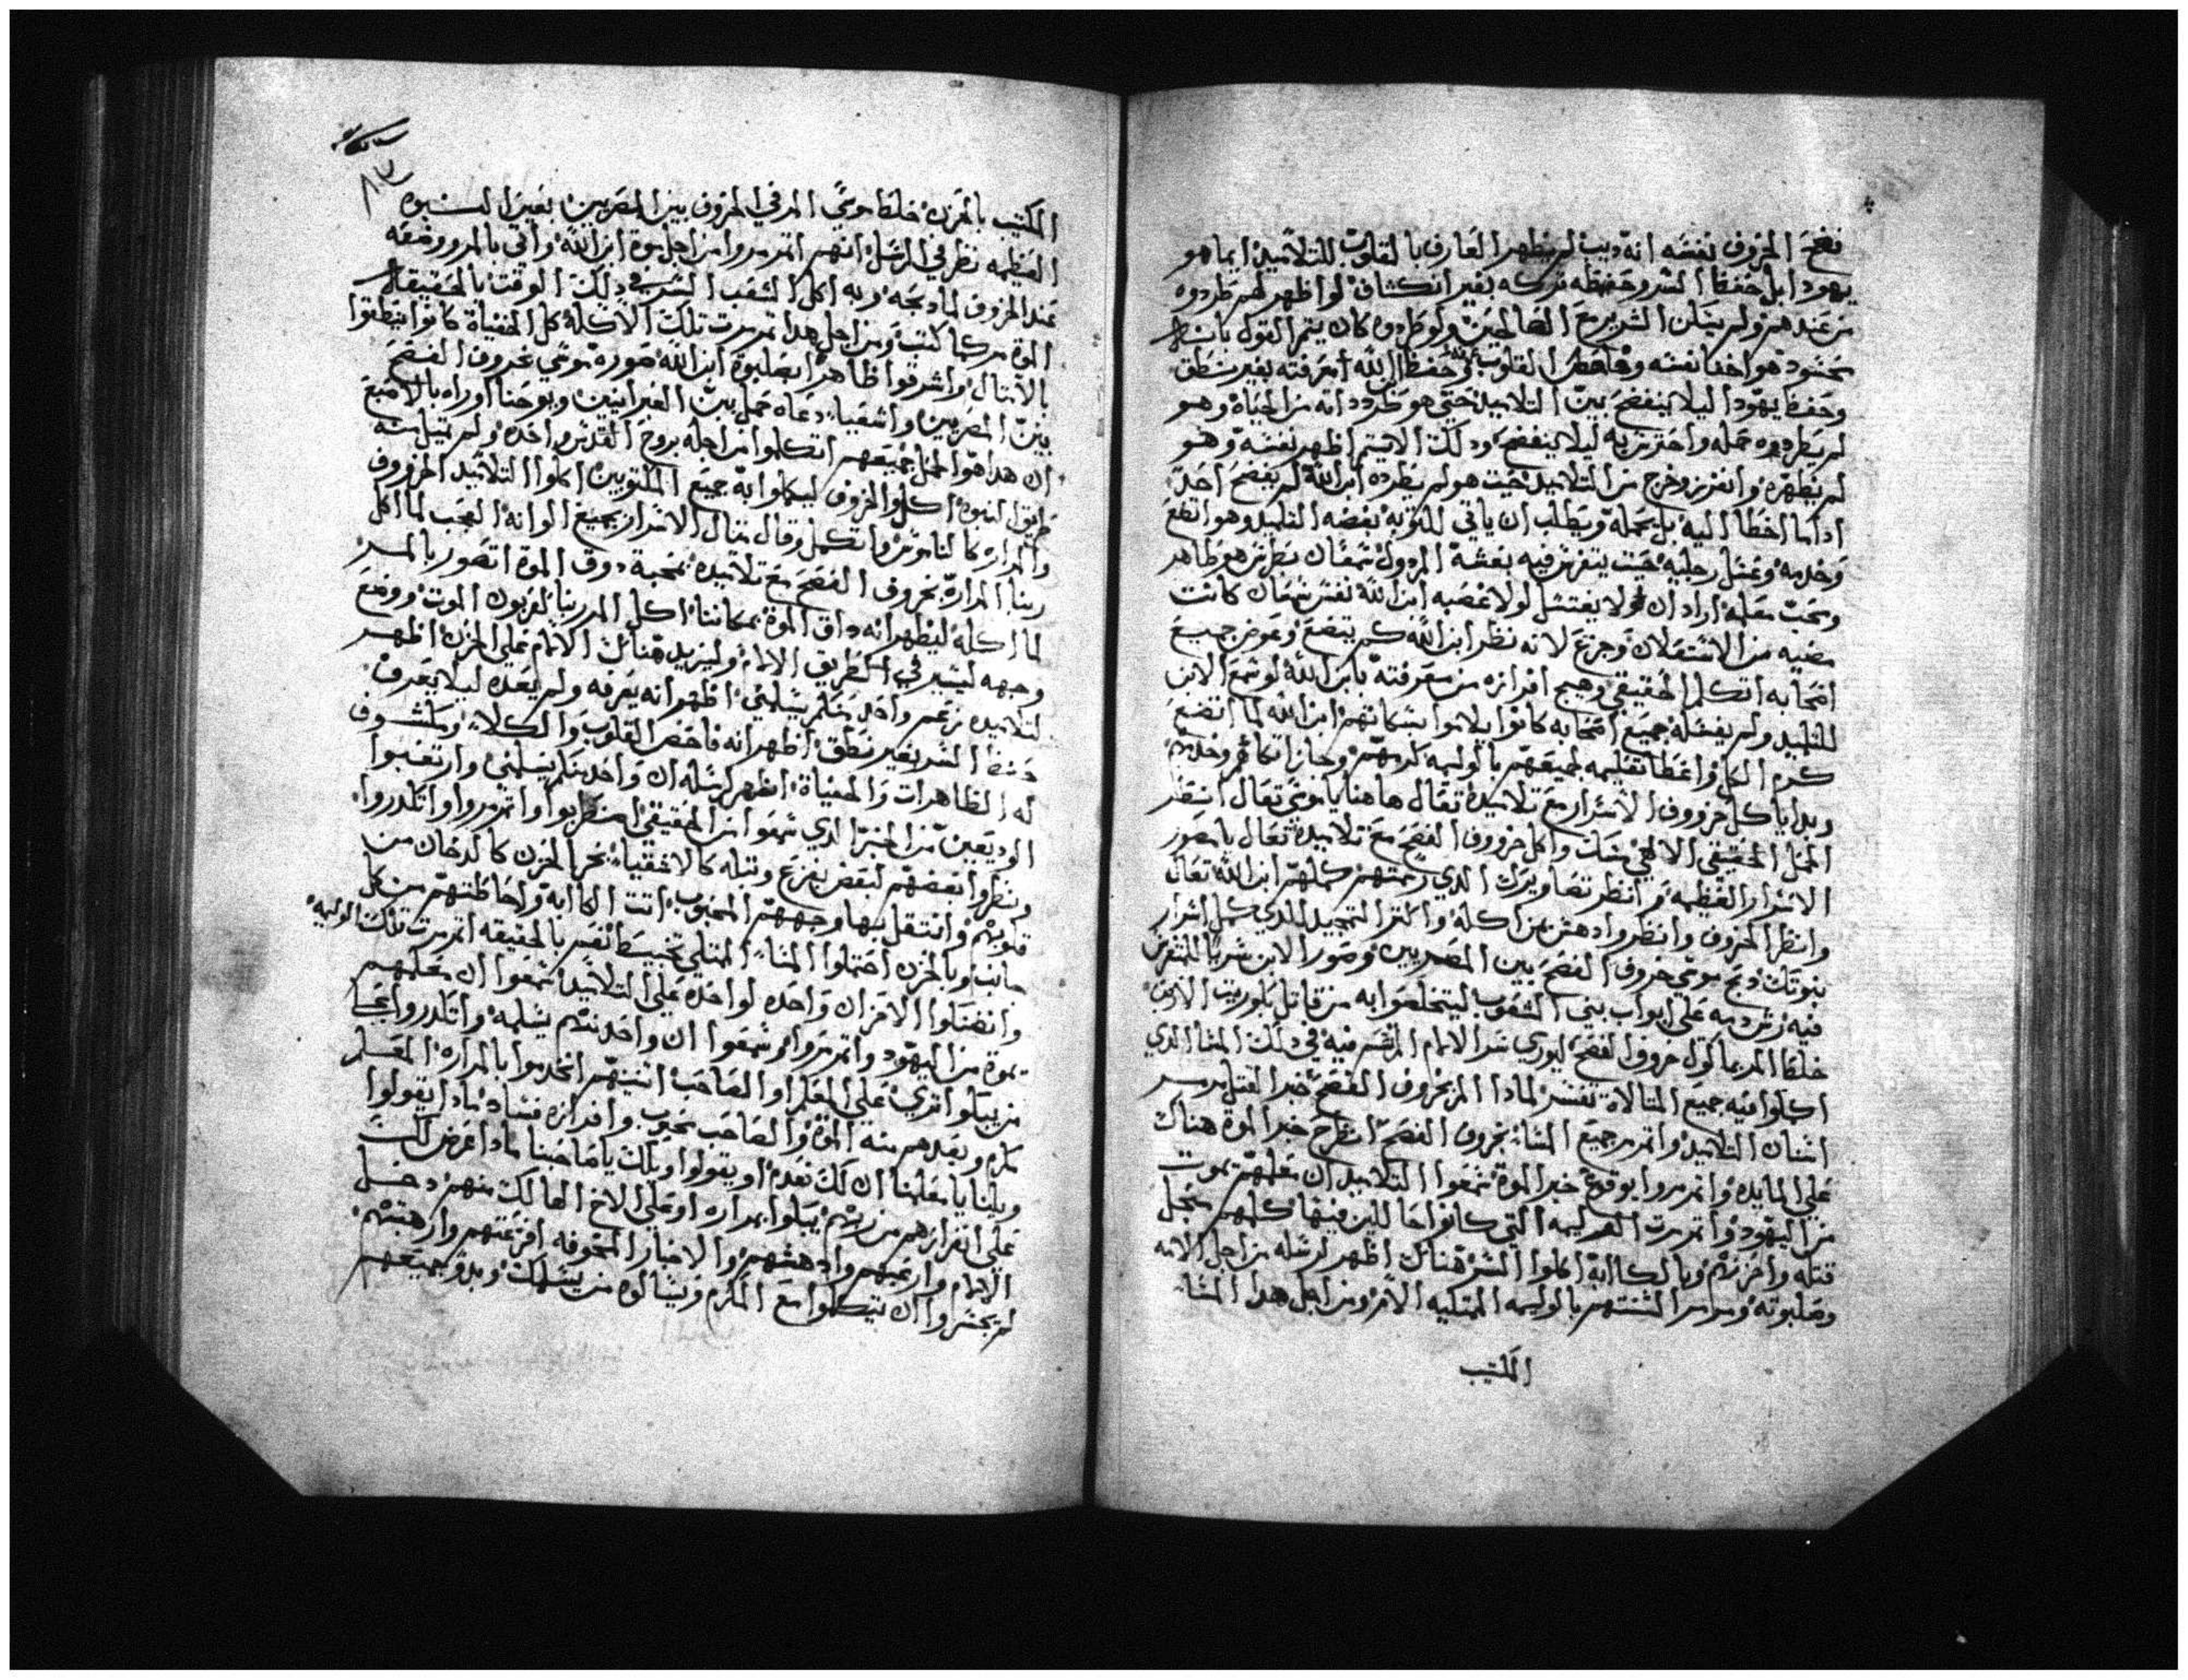 فضح الخروف نفسه انه ديب لم يظهر العارف بالقلوب للتلاميد ايما هو
يهودا بل حفظ السر وحفظه تركه بغير انكشاف لو اظهر لهم طردوه
من عندهم ولم يسكن الشرير مع الصالحين ولو طردوه كان يتم القول بانسان
حسود هو اخفا نفسه وفاحص القلوب حفظ ابن الله معرفته بغير نطق
وحفظ يهودا ليلا ينفضح بين التلاميد حتى هو طرد داته من الحياة وهو
لم يطردوه حمله واحترس به ليلا ينفضح ودلك الاثيم اظهر نفسه وهو
لم يظهره وانفرز وخرج من التلاميد حيث هو لم يطرده ابن الله لم يفضح احد
ادا ما اخطا اليه بل يحمله ويطلب ان ياتي للتوبه بغضه التلميد وهو اتضع
وخدمه وغسل رجليه حيث يتفرس فيه بغشه المردول سمعان نطرس هو طاهر
وبحب معلمه اراد ان لا يغتسل لولا غصبه ابن الله نفس سمعان كانت
مضيه من الاشتعلان وجزع لانه نظر ابن الله كم يتضع وعوض جميع
اصحابه اتكلم الحقيقي وهيج افرازه من معرفته بابن الله لو سمع الابن
للتلميد ولم يغسله جميع اصحابه كانوا يلاموا بشكاتهم ابن الله لما اتضع
كرم الكل واعطا تعليمه لجميعهم بالوليمه كرمهم وجاز اتكا هم وخدمهم
وبدا ياكل خروف الاسرار مع تلاميده تعال هاهنا يا موسى تعال انظر
الحمل الحقيقي الالهي منك واكل خروف الفصح مع تلاميده تعال يا مصور
الاسرار العظيمه وانظر تصاويرك الدي رسمتهم كملهم ابن الله تعال
وانظر الخروف وانظر وادهش من اكله واكتر التمجيد للدي كمل اسرار
نبوتك دبح موسى خروف الفصح بين المصريين وصور الابن شربا للمتفرس
فيه رش دمه على ابواب بني الشعوب ليتخلصوا به من قاتل بلوريت الارض
خلط المر بماكول خروف الفصح ليوري سر الالام المرسم فيه في دلك المثال الدي
اكملوا فيه جميع المتالات تفسر لمادا المر بخروف الفصح خبر القتل مرمر
اسنان التلاميد واتمرمر جميع العشا بخروف الفصح انطرح خبر الموة هناك
على المايده واتمرمروا بوقوع خبر الموة سمعوا التلاميد ان معلمهم يموت
من اليهود واتمرمرت الوليمه التي كانوا جالسين فيها كلهم بخجل
قتله واحزنهم وبالكاابه اكملوا السر هناك اظهر لرسله من اجل الامه
وصلبوته ومرمر السنتهم بالوليمه الممتليه الامر ومن اجل هدا العشا
المكتيب
المكتيب بالحزن خلط موسى المر في الخروف بين المصريين بعين النبوه
العظيمه نظر في الرسل انهم اتمرمروا من اجل موة ابن الله واتي بالمر ووضعه
عند الخروف لما دبحه وبه اكل الشعب السر في دلك الوقت بالحقيقه
الموة مر كما كتب ومن اجل هدا تمرمرت تلك الاكله كل الخفياة كانوا ينطقوا
بالامتال واشرقوا ظاهرا بصلبوة ابن الله صوره موسى بخروف الفصح
بين المصريين واشعياء دعاه حمل بين العبرانيين ويوحنا اوراه بالاصبع
ان هدا هو الحمل جميعهم اتكلموا من اجله بروح القدس واحده ولم تتبل منه
طريق النبوة اكلوا الخروف ليكملوا به جميع المكتوبين اكلوا التلاميد الخروف
والمراره كالناموس واتكمل وقال متال الاسرار بجميع الوانه العجب لما اكل
ربنا المراره بخروف الفصح مع تلاميده بمحبة دوق الموة اتصور بالمر
لما اكله ليظهر انه داق الموة بمكاننا اكل المر ربنا لقربون الموت ووضع
وجهه ليسير في طريق الالام وليزيد هناك الالام على الحزن اظهر
لتلاميده بزعم واحد منكم يسلمني اظهر انه يعرفه ولم يعده ليلا يعرف
حفظ السر بغير نطق اظهر انه فاحص القلوب والكلا ومكشوف
له الظاهرات والخفياة اظهر لرسله ان واحد منكم يسلمني وارتعبوا
الوديعين من الخبر الدي سمعوا من الحقيقي اضطربوا واتمرمروا واتكدروا
ونظروا بعضهم لبعض بفزع وتبله كالاشقياء بخر الحزن كالدخان من
قلوبهم وانتقل بها وجههم المحبوب اتت الكاابه واحاطتهم من كل
جانب وبالحزن احتملوا العشا الممتلي تخبيط انفس بالحقيقه اتمرمرت تلك الوليمه
وانضنكوا الاحزان واحده لواحده على التلاميد سمعوا ان معلمهم
يموة من اليهود واتمرمروا وسمعوا ان واحد منهم يسلمه واتكدروا بحيا
من يبكوا تري على المعلم او الصاحب اتنينهم اتخدموا بالمراره المعلم
مكرم وبعدهم منه الموة والصاحب محبوب وافرازه فساد مادا يقولوا
ويلنا يا معلمنا ان لك نعدم او يقولوا ويلك يا صاحبنا مادا عرض لك
على افرازهم من ربهم يبكوا بمراره او على الاخ الهالك منهم دخل
الالام وارعبهم وادهشهم والاخبار المخوفه افزعتهم وارهبتهم
لم يجسروا ان يتكلموا مع المكرم ويسالوه من يسلمك وبدو جميعهم